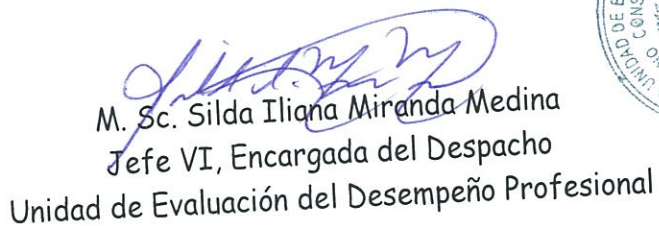 M. Sc. Silda Iliana Miranda Medina
Jefe VI, Encargada del Despacho
Unidad de Evaluación del Desempeño Profesional
UNIDAD DE